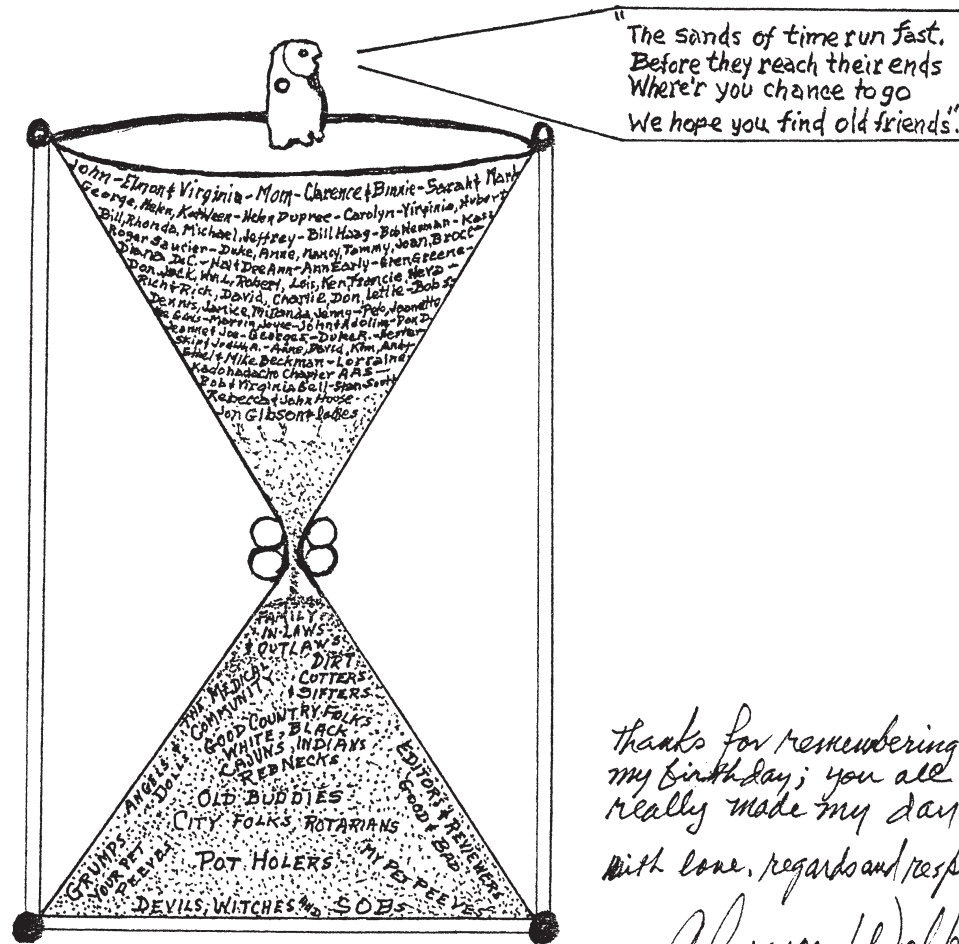 "The sands of time run fast.
Before they reach their ends
Where'r you chance to go
We hope you find old friends".
John-Elmont Virginia-Mom-Clarence & Binnie-Sarah & Mark
George, Helen, Kathleen-Helen Dupree-Carolyn-Virginia, Hubert
Bill, Rhonda, Michael, Jeffrey-Bill Haag-Bob Neuman-
Roger Saucier-Duke, Anne, Nancy, Tammy, Joan, Brott-
Diana DeC.- Dee Ann-Ann Early-Gren Greene-
Don, Jack, Robert, Lois, Ken, Francie
Rich & Rich, David, Charlie, Don, Leslie-Bob
Dennis, Janice, Miranda, Jenny-Pete, Jeanette
Marvin, Joyce-John & Don D.
Joe-George-Duke R.-Hester
Skip, -Anne, David, Kim, Andy
Ethel & Mike Beckman-Lorraine
Kadohadacho Chapter AAS-
Bob & Virginia Bell-Stan Scott
Rebecca & John House-
Jon Gibson &
FAMILY
IN-LAWS-
& OUTLAWS
DIRT
CUTTERS
& SIFTERS
THE MEDICAL
COMMUNITY
ANGELS &
DOLLS
GOOD COUNTRY FOLKS
WHITE, BLACK
CAJUNS, INDIANS
REDNECKS
EDITORS & REVIEWERS
GOOD & BAD
OLD BUDDIES
CITY FOLKS, ROTARIANS
GRUMPS
YOUR PET
PEEVES
POT HOLERS
MY PET PEEVES
DEVILS, WITCHES AND SOBs
thanks for remembering
my birthday; you all
really made my day
with love, regards and resp